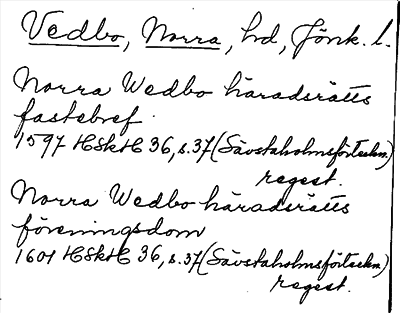 Vedbo, Norra, hd, Jönk. l.
Norra Wedbo häradsrätts
fastebref
1597 HSkH 36, s. 37 (Sävstaholmsförteckn.)
regest.
Norra Wedbo häradsrätts
föreningsdom
1601 HSkH 36, s. 37 (Sävstaholmsförteckn)
regest.